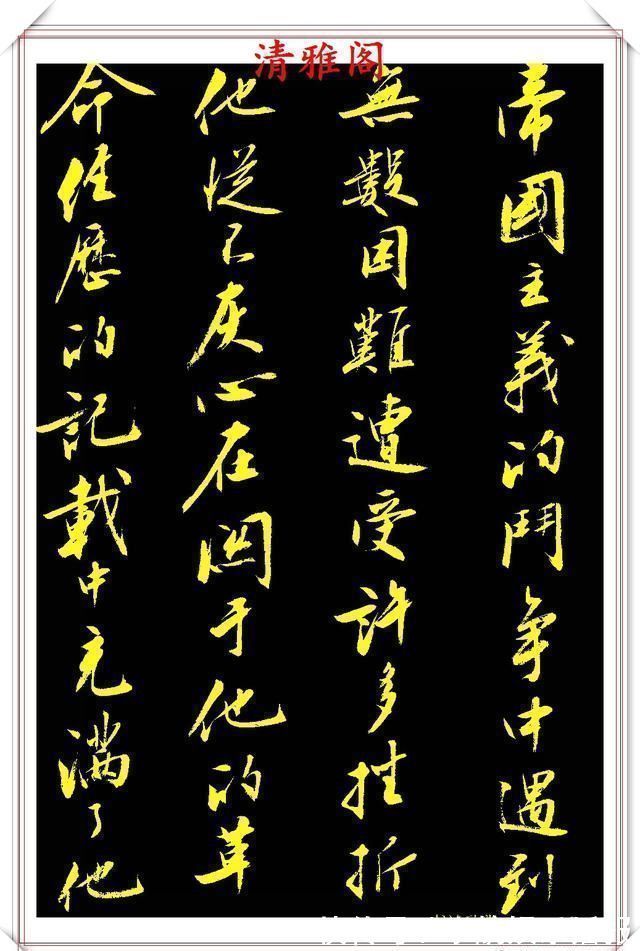 清雅阁
帝國主義的鬥爭中遇到
無數困難遭受許多挫折
他從不灰心在關于他的革
命經歷的記載中充滿了他